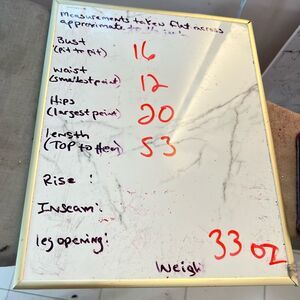 Measurements taken flat across
approximate to the inch
Bust 16
(pit to pit)
waist 12
(smallest point)
Hips 20
(largest point)
length 53
(TOP to Hem)
Rise :
Inseam:
leg opening:
33 oz
Weigh